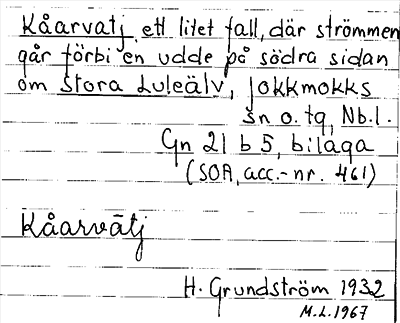 Kåarvatj, ett litet fall, där strömmen
går förbi en udde på södra sidan
om Stora Luleälv, Jokkmokks
sn o. tg, Nb.l.
Gn 21 b 5, bilaga
(SOA, acc.-nr. 461)
Kåarvātj
H. Grundström 1932
M.L. 1967